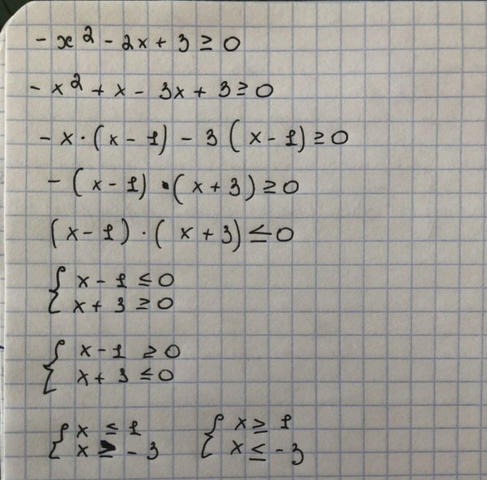 - x² - 2x + 3 ≥ 0
- x² + x - 3x + 3 ≥ 0
- x · (x - 1) - 3 (x - 1) ≥ 0
- (x - 1) · (x + 3) ≥ 0
(x - 1) · (x + 3) ≤ 0
{ x - 1 ≤ 0
x + 3 ≥ 0
{ x - 1 ≥ 0
x + 3 ≤ 0
{ x ≤ 1 { x ≥ 1
x ≥ - 3 x ≤ - 3